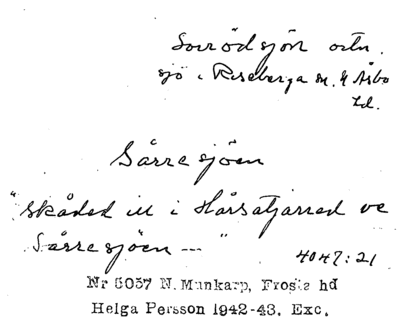 Sorrödsjön ortn.
sjö i Riseberga sn. N Åsbo
hd.
Särresjöen
"Skåded ill i Hårsatjarred ve
Särresjöen --- "
4047:21
Nr 5057 N. Munkarp, Frosta hd
Helga Persson 1942-43. Exc.